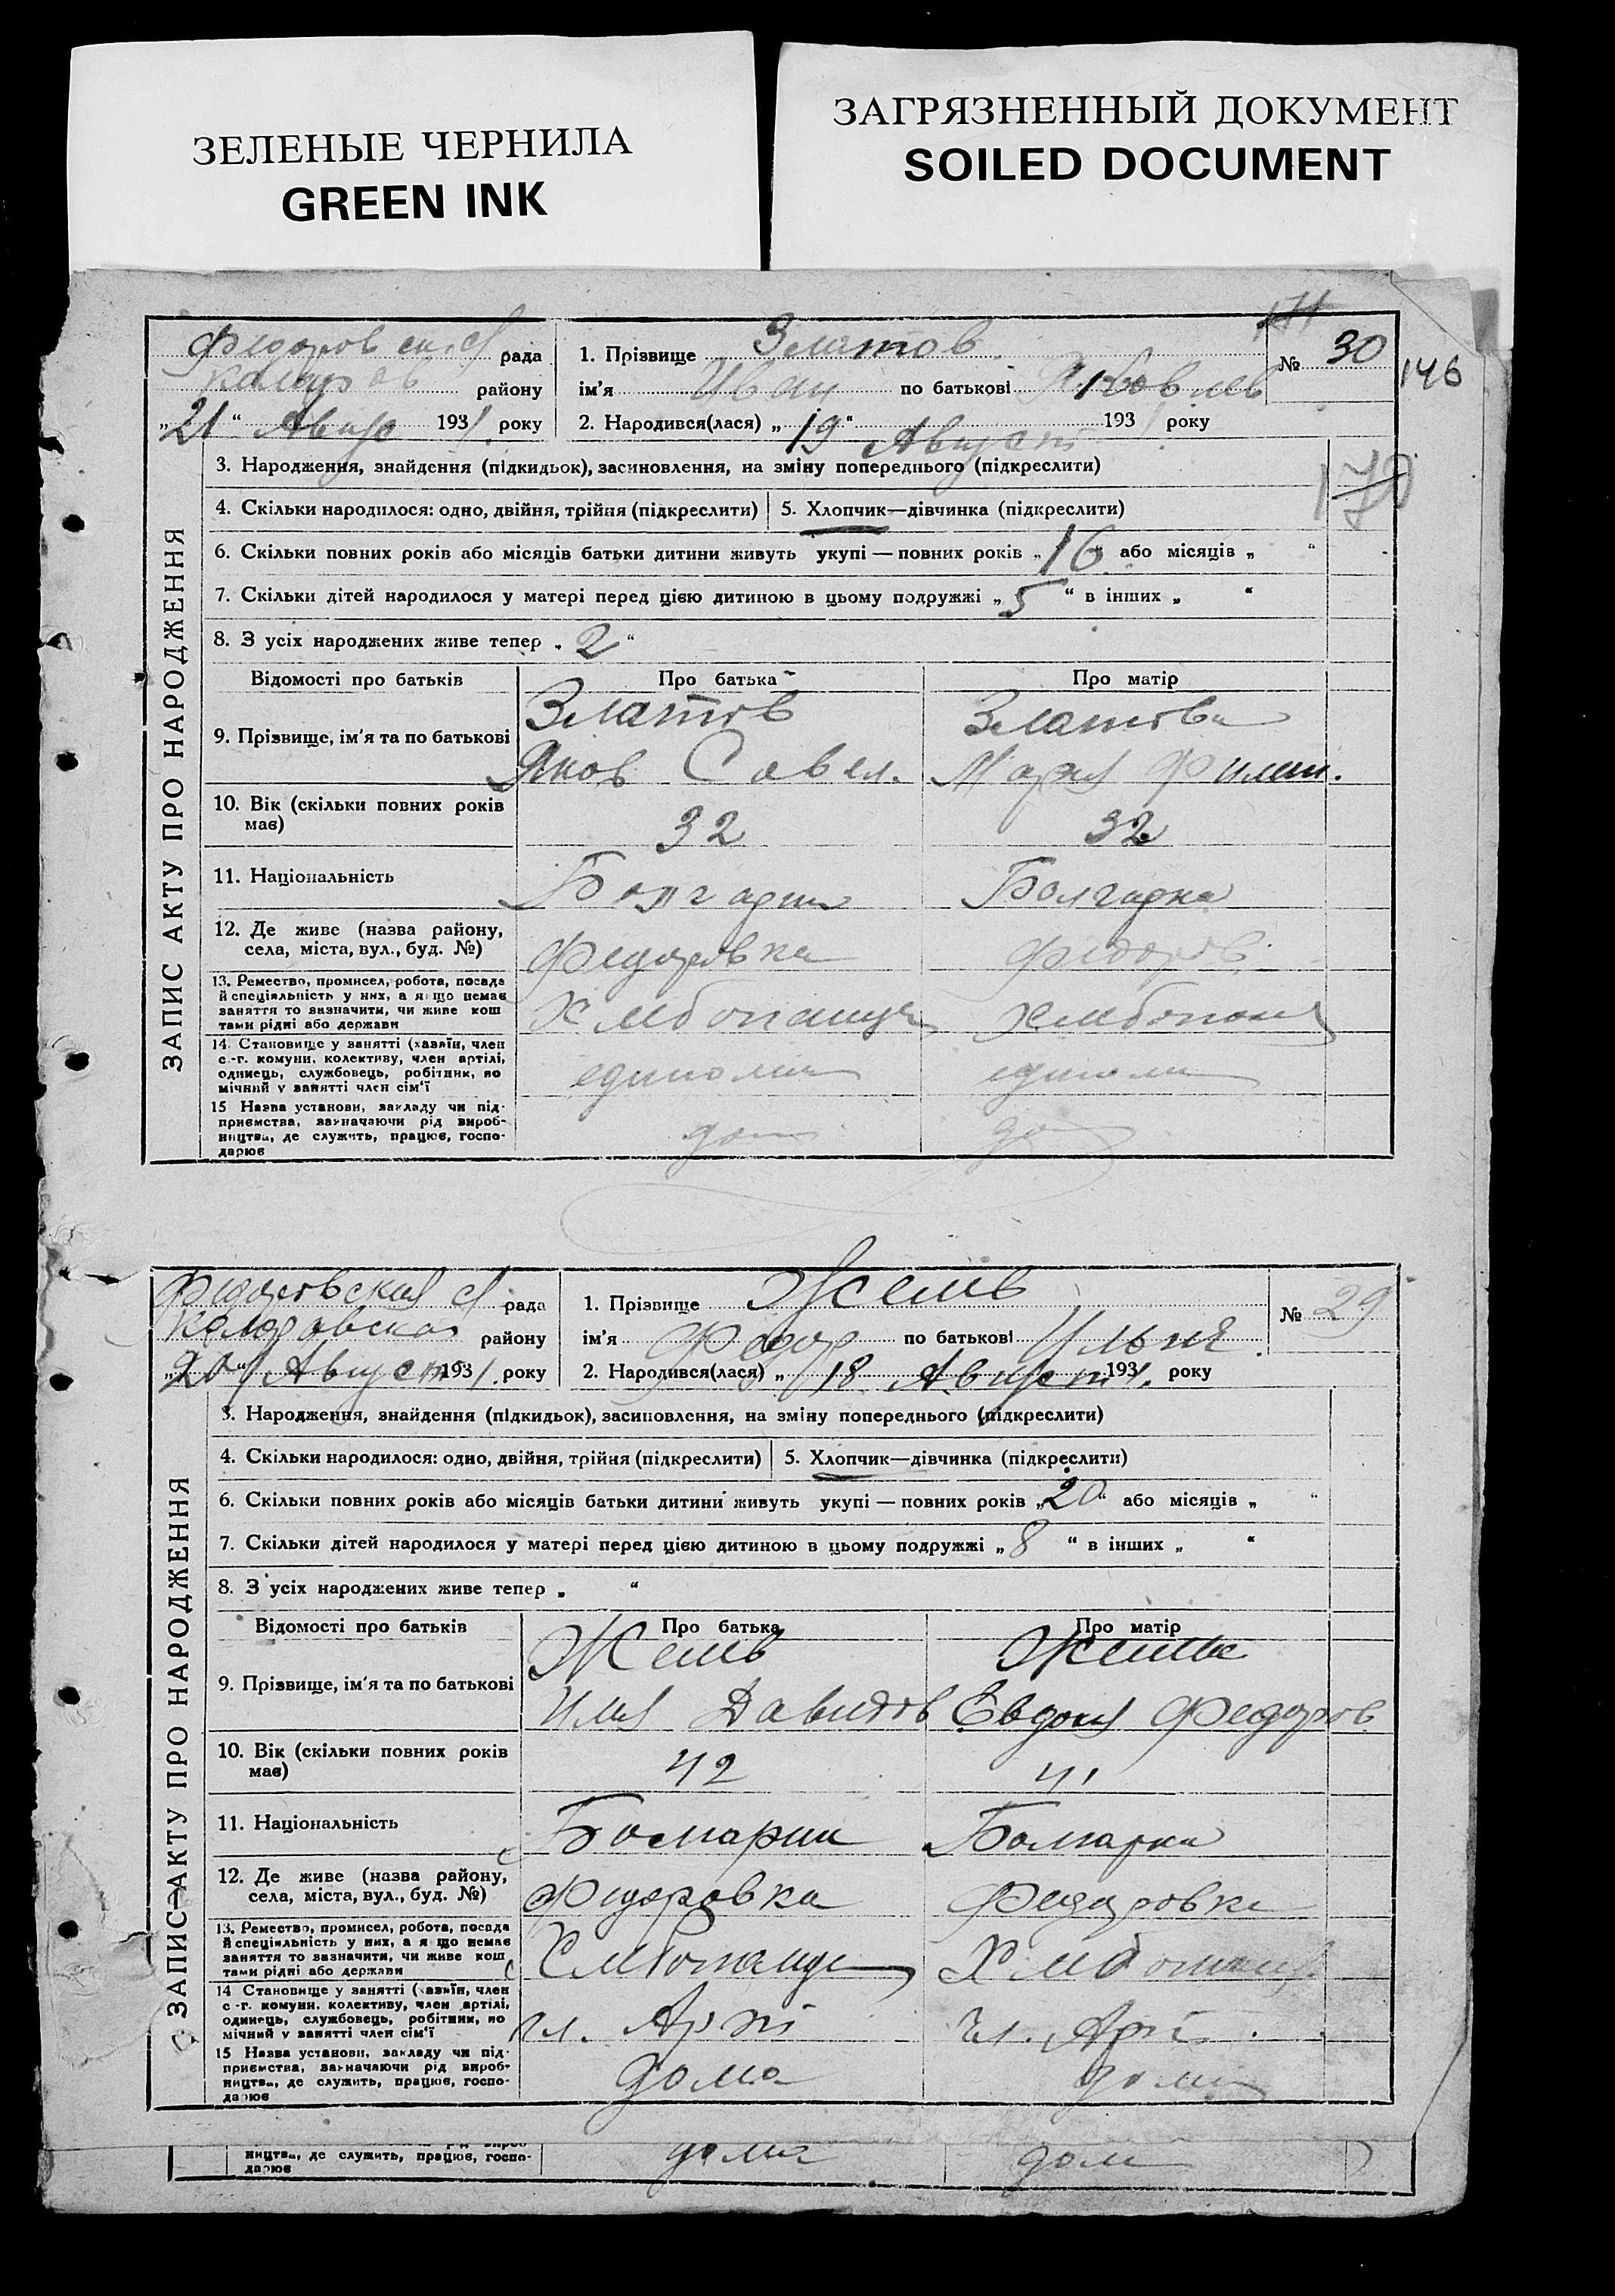 ЗЕЛЕНЫЕ ЧЕРНИЛА
GREEN INK
ЗАГРЯЗНЕННЫЙ ДОКУМЕНТ
SOILED DOCUMENT
146
ЗАПИС АКТУ ПРО НАРОДЖЕННЯ
рада
району
„21“ 1931. року
1. Прізвище Златов
ім'я Иван по батькові Яковлев
№ 30
2. Народився(лася) „19“ Август 1931 року
3. Народження, знайдення (підкидьок), засиновлення, на зміну попереднього (підкреслити)
4. Скільки народилося: одно, двійня, трійня (підкреслити)
5. Хлопчик—дівчинка (підкреслити)
6. Скільки повних років або місяців батьки дитини живуть укупі — повних років „16“ або місяців „ “
7. Скільки дітей народилося у матері перед цією дитиною в цьому подружжі „5“ в інших „ “
8. З усіх народжених живе тепер „2“
Відомості про батьків
Про батька
Про матір
9. Прізвище, ім'я та по батькові
Златов
Яков Савел.
Златова
Мария Филип.
10. Вік (скільки повних років
має)
32
32
11. Національність
Болгарин
Болгарка
12. Де живе (назва району,
села, міста, вул., буд. №)
Федоровка
Федоров
13. Ремество, промисел, робота, посада
й спеціяльність у них, а якщо немає
заняття то зазначити, чи живе кош
тами рідні або держави
14. Становище у занятті (хазяїн, член
с.-г. комуни, колективу, член артілі,
одинець, службовець, робітник, по
мічний у занятті член сім'ї
15 Назва установи, закладу чи під-
приємства, зазначаючи рід вироб-
ництва, де служить, працює, госпо-
дарює
ЗАПИС АКТУ ПРО НАРОДЖЕННЯ
Федоровская с/ рада
району
„20“ Август 1931. року
1. Прізвище
ім'я Федор по батькові
№ 29
2. Народився(лася) „18 Август 1931. року
3. Народження, знайдення (підкидьок), засиновлення, на зміну попереднього (підкреслити)
4. Скільки народилося: одно, двійня, трійня (підкреслити)
5. Хлопчик—дівчинка (підкреслити)
6. Скільки повних років або місяців батьки дитини живуть укупі — повних років „20“ або місяців „ “
7. Скільки дітей народилося у матері перед цією дитиною в цьому подружжі „8 “ в інших „ “
8. З усіх народжених живе тепер „ “
Відомості про батьків
Про батька
Про матір
9. Прізвище, ім'я та по батькові
Илия Давидов
Евдокия Федоров
10. Вік (скільки повних років
має)
42
41
11. Національність
Болгарин
Болгарка
12. Де живе (назва району,
села, міста, вул., буд. №)
Федоровка
Федоровка
13. Ремество, промисел, робота, посада
й спеціяльність у них, а якщо немає
заняття то зазначити, чи живе кош
тами рідні або держави
14 Становище у занятті (хазяїн, член
с.-г. комуни, колективу, член артілі,
одинець, службовець, робітник, по
мічний у занятті член сім'ї
чл. Арті
чл. Арті.
15 Назва установи, закладу чи під-
приємства, зазначаючи рід вироб-
ництва, де служить, працює, госпо-
дарює
дома
дома
ництва, де служить, працює, госпо-
дарює
дома
дом